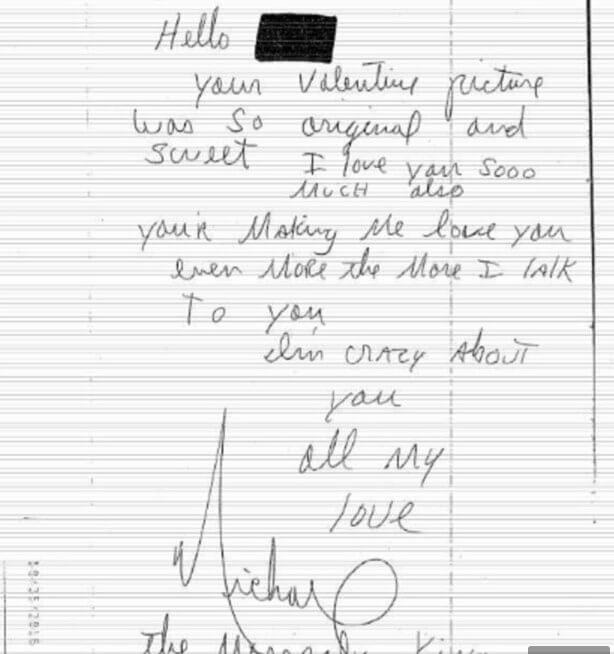 Hello
your Valentine picture
was so original and
sweet I love you sooo
much also
you'r Making Me love you
even More the More I talk
To you
I'm CRAZY About
you
all My
love
Michael
the
10/25/2016